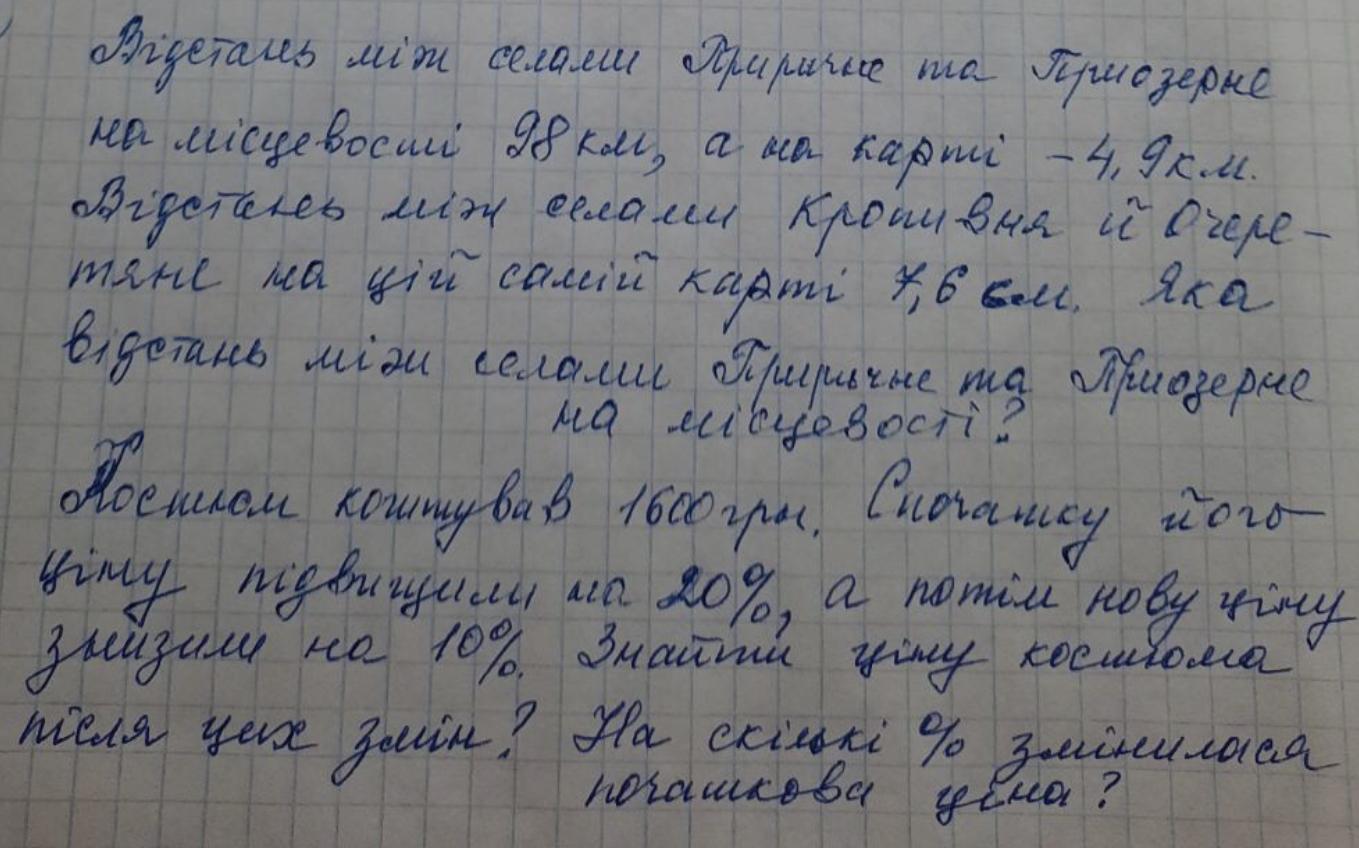 Відстань між селами Приричне та Приозерне
на місцевості 98 км, а на карті - 4,9 км.
Відстань між селами Кропивня й Очере-
тяне на цій самій карті 7,6 см. Яка
відстань між селами Приричне та Приозерне
на місцевості?
Костюм коштував 1600 грн. Спочатку його
ціну підвищили на 20%, а потім нову ціну
знизили на 10%. Знайти ціну костюма
після цих змін? На скількі % змінилася
початкова ціна?